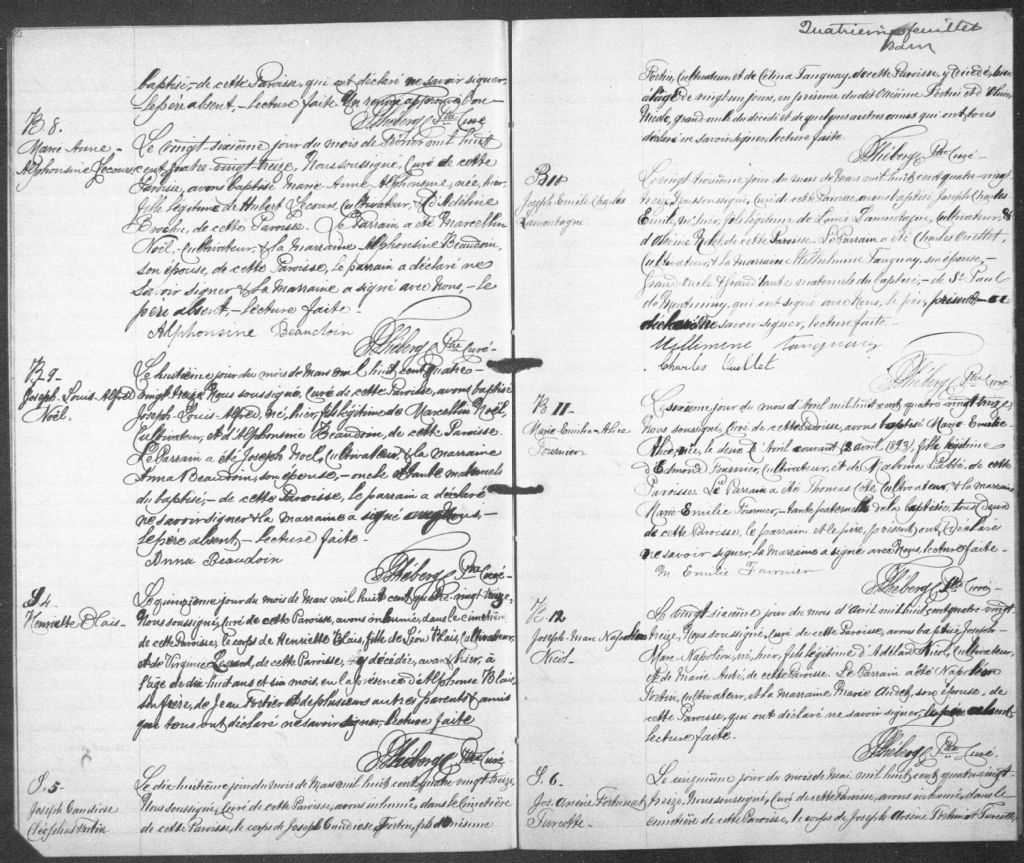 baptisé, de cette Paroisse, qui ont déclaré ne savoir signer,
Le père absent, Lecture faite. Un renvoi approuvé bon
Ptre Curé
B. 8.
Marie Anne
Alphonsine Lecours
Le vingt sixième jour du mois de Février mil huit
cent quatre-vingt-treize, Nous soussigné, Curé de cette
Paroisse, avons baptisé Marie Anne Alphonsine, née, hier,
fille légitime de Hubert Lecours, Cultivateur, & d'Adéline
de cette Paroisse. Le Parrain a été Marcellin
Noël, Cultivateur, & la marraine Alphonsine Beaudoin,
son épouse, de cette Paroisse, le parrain a déclaré ne
savoir signer & la Marraine a signé avec Nous, - Le
père absent, - Lecture faite -
Alphonsine Beaudoin
Ptre Curé -
B. 9 -
Joseph Louis Alfred
Noël.
Le huitième jour du mois de Mars mil huit cent quatre-
vingt treize Nous soussigné, Curé de cette Paroisse, avons baptisé
Joseph Louis Alfred, né, hier, fils légitime de Marcellin Noël,
Cultivateur, et d'Alphonsine Beaudoin, de cette Paroisse.
Le Parrain a été Joseph Noël, Cultivateur & la marraine
Anna Beaudoin, son épouse, - oncle & tante maternels
du baptisé, - de cette Paroisse, le parrain a déclaré
ne savoir signer & la marraine a signé avec Nous, -
le père absent - Lecture faite -
Anna Beaudoin
Ptre Curé -
S. 4
Henriette Blais -
Le quinzième jour du mois de Mars mil huit cent quatre-vingt treize,
Nous soussigné, Curé de cette Paroisse, avons inhumé, dans le cimetière
de cette Paroisse, le corps de Henriette Blais, fille de Léon Blais, Cultivateur,
et de Virginie de cette Paroisse, - y décédée, avant hier, à
l'âge de dix huit ans et six mois, en la présence d'Alphonse Blais
son frère, de Jean Fortier & de plusieurs autres parents & amis
qui tous ont déclaré ne savoir signer, Lecture faite
Ptre Curé
S. 5
Joseph Candiose
Fortin
Le dix-huitième jour du mois de Mars mil huit cent quatre vingt treize,
Nous soussigné, Curé de cette Paroisse, avons inhumé, dans le Cimetière
de cette Paroisse, le corps de Joseph Candiose Fortin, fils d'Onésime
Quatrième feuillet
Fortin, Cultivateur, et de Célina Tanguay, de cette Paroisse, y décédé, hier,
à l'âge de vingt un jours, en présence du dit Onésime Fortin et d'
grand oncle du décédé et de quelques autres amis qui ont tous
déclaré ne savoir signer, lecture faite
Ptre Curé -
B 10
Joseph Emile Charles
Lamontagne.
Le vingt troisième jour du mois de Mars mil huit cent quatre-vingt
treize, Nous soussigné, Curé de cette Paroisse, avons baptisé Joseph Charles
Emile, né, hier, fils légitime de Louis Lamontagne, Cultivateur, &
de cette Paroisse. Le Parrain a été Charles Ouellet,
Cultivateur, & la marraine Wilhelmine Tanguay, son épouse, -
Grand Oncle & Grand' tante maternels du baptisé, - de St Paul
de Montminy, qui ont signé avec Nous, le père, présent, - a
déclaré ne savoir signer, lecture faite -
Tanguay
Charles Ouellet
Ptre Curé
B 11 -
Marie Emilia Alice
Fournier
Le sixième jour du mois d'Avril mil huit cent quatre vingt treize
Nous soussigné, Curé de cette Paroisse, avons baptisé Marie Emilie
Alice, née, le deux d'Avril courant (2 avril 1893) fille légitime
d'Edmond Fournier, Cultivateur, et de Malvina Labbé, de cette
Paroisse. Le Parrain a été Thomas Côté, Cultivateur, & la marraine
Marie Emilie Fournier, - tante paternelle de la baptisée, tous deux
de cette Paroisse, le parrain et le père, présent, ont déclaré
ne savoir signer, la Marraine a signé avec Nous, lecture faite -
M Emilie Fournier
Ptre Curé -
B. 12
Joseph-Marc Napoléon
Nicol -
Le vingt sixième jour du mois d'Avril mil huit cent quatre vingt
treize, Nous soussigné, Curé de cette Paroisse, avons baptisé Joseph
Marc Napoléon, né, hier, fils légitime d'Adélard Nicol, Cultivateur,
et de Marie de cette Paroisse. Le Parrain a été Napoléon
Fortin, Cultivateur, et la marraine Marie Audet, son épouse, de
cette Paroisse, qui ont déclaré ne savoir signer, le père absent,
Lecture faite.
Ptre Curé
S. 6.
Jos. Arsène Fortunat
Turcotte -
Le cinquième jour du mois de Mai mil huit cent quatre vingt-
treize, Nous soussigné, Curé de cette Paroisse, avons inhumé, dans le
cimetière de cette Paroisse, le corps de Joseph Arsène Fortunat Turcotte,